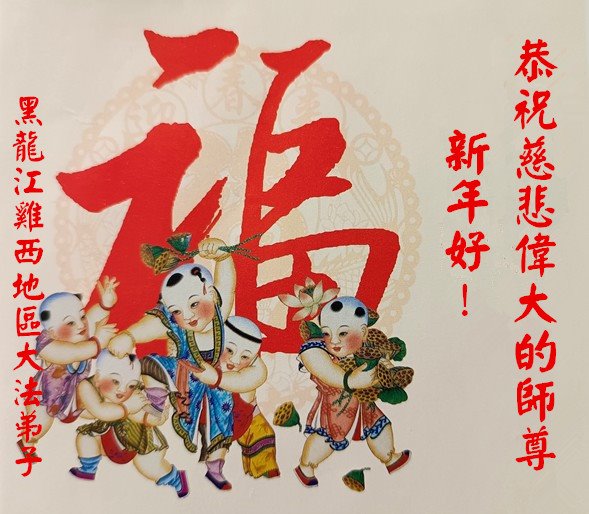 恭祝慈悲偉大的師尊
新年好！
福
春
黑龍江雞西地區大法弟子